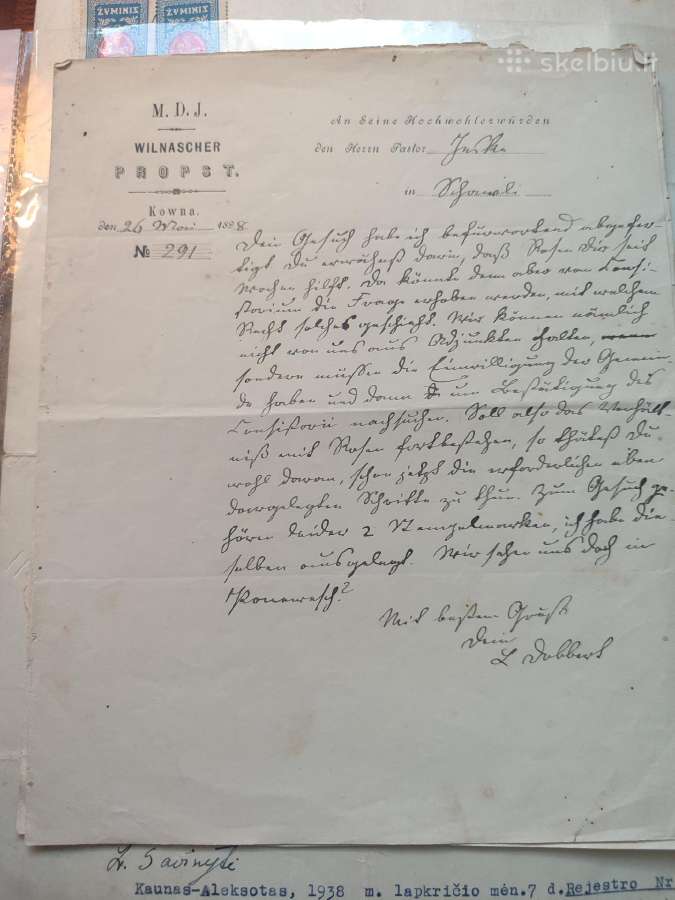 ŽYMINIS ŽYMINIS
skelbiu.lt
M. D. J.
WILNASCHER
PROPST.
Kowna.
den 26 Mai 1888.
№ 291
An Seine Hochwohlerwürden
den Herrn Pastor Jeske
in Schawli
Dein Gesuch habe ich befürwortend abgefer-
tigt. Du erwähnst darin, daß Rosen Dir seit
Wochen hilft. Da könnte denn aber vom Consi-
storium die Frage erhoben werden, mit welchem
Recht solches geschieht. Wir können nämlich
nicht von uns aus Adjunkten halten,
sondern müssen die Einwilligung der Gemein-
de haben und dann um Bestätigung des
Consistorii nachsuchen. Soll also das Verhält-
niß mit Rosen fortbestehen, so thätest Du
wohl daran, schon jetzt die erforderlichen eben
dargelegten Schritte zu thun. Zum Gesuch ge-
hören leider 2 Stempelmarken, ich habe die
selben ausgelegt. Wir sehen uns doch in
Ponewesch?
Mit bestem Gruß
Dein
L Dobbert
Kaunas-Aleksotas, 1938 m. lapkričio mėn. 7 d. Rejestro Nr